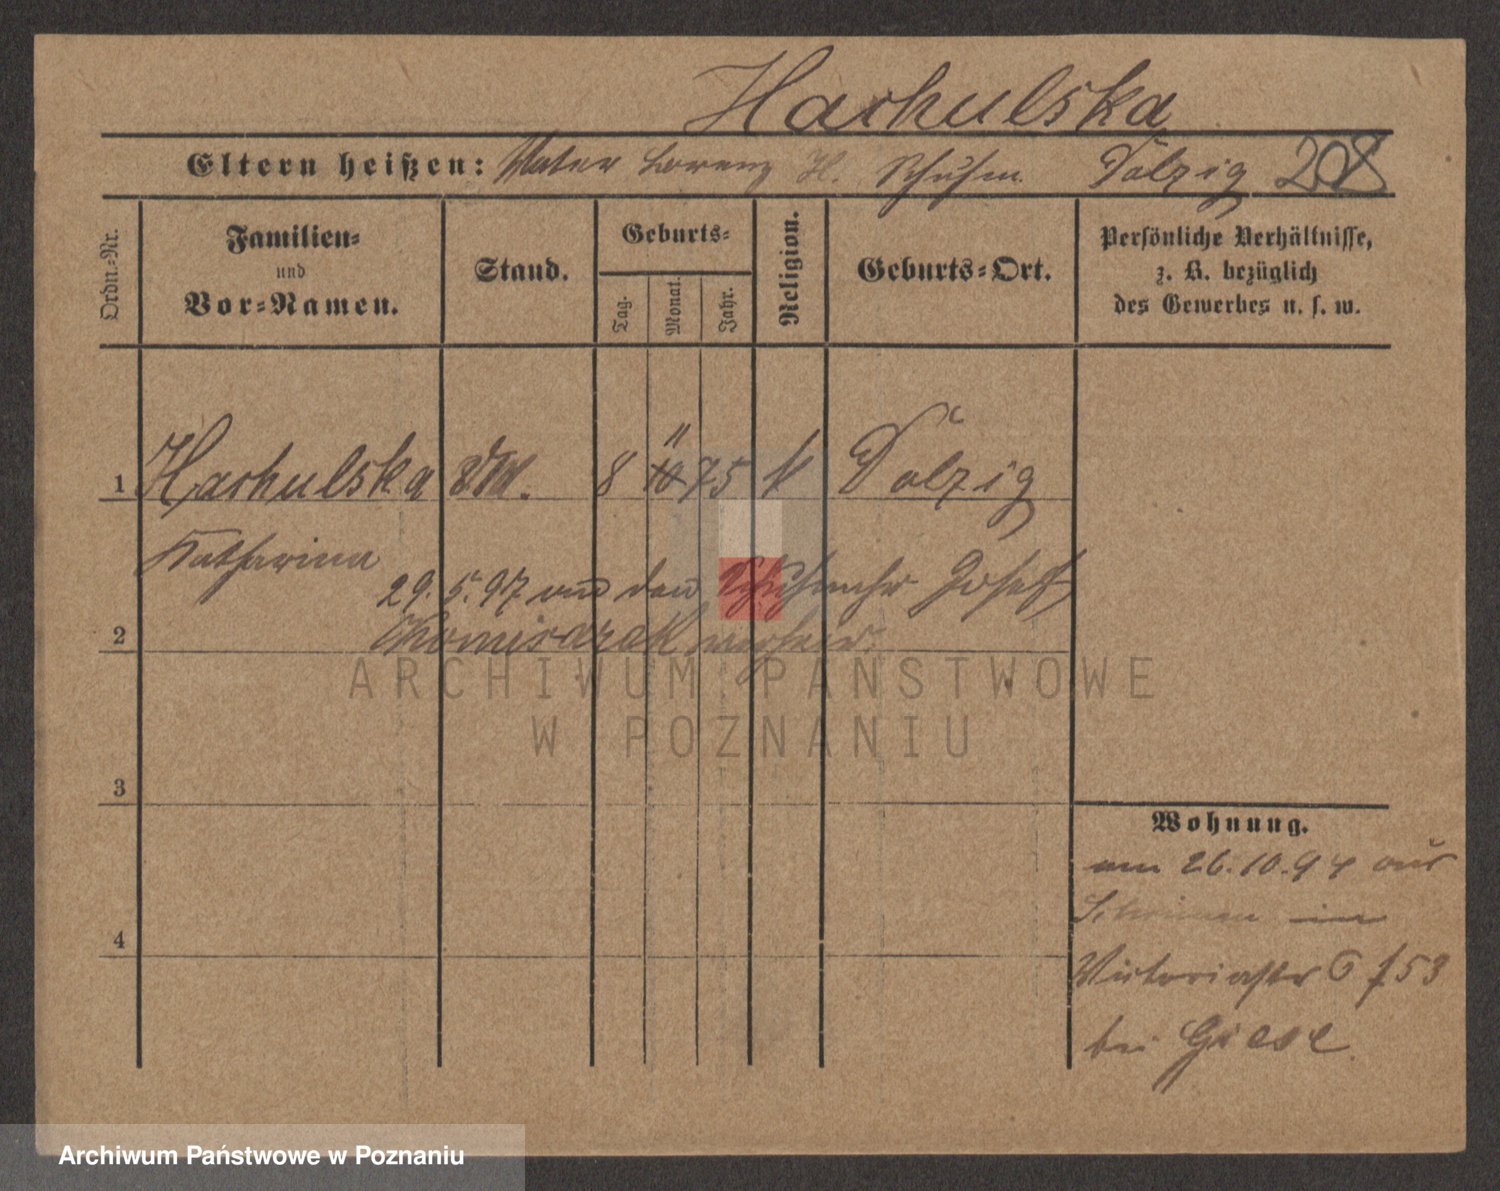 Hachulska
Eltern heißen: Vater Lorenz H. Schuhm. Dolzig 208
Ordn.-Nr.
Familien-
und
Vor-Namen.
Stand.
Geburts-
Tag.
Monat.
Jahr.
Religion.
Geburts-Ort.
Persönliche Verhältnisse,
z. B. bezüglich
des Gewerbes u. s. w.
11
1 Hachulska 8 10 75 k Dolzig
Katharina
29.5.97 an den Schuhmacher Josef
2 verheir.
3
4
Wohnung.
am 26.10.94 aus
Schrimm in
Victoriastr 6 f 53
bei Giese
ARCHIWUM PAŃSTWOWE
W POZNANIU
Archiwum Państwowe w Poznaniu